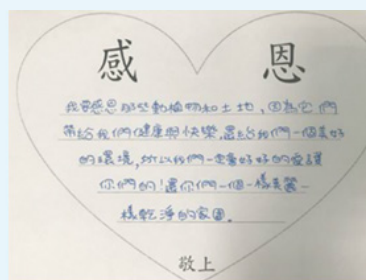 感 恩
我要感恩那些動植物和土地,因為它們
帶給我們健康與快樂,還給我們一個美好
的環境,所以我們一定要好好的愛護
你們的!還你們一個一樣美麗一
樣乾淨的家園。
敬上